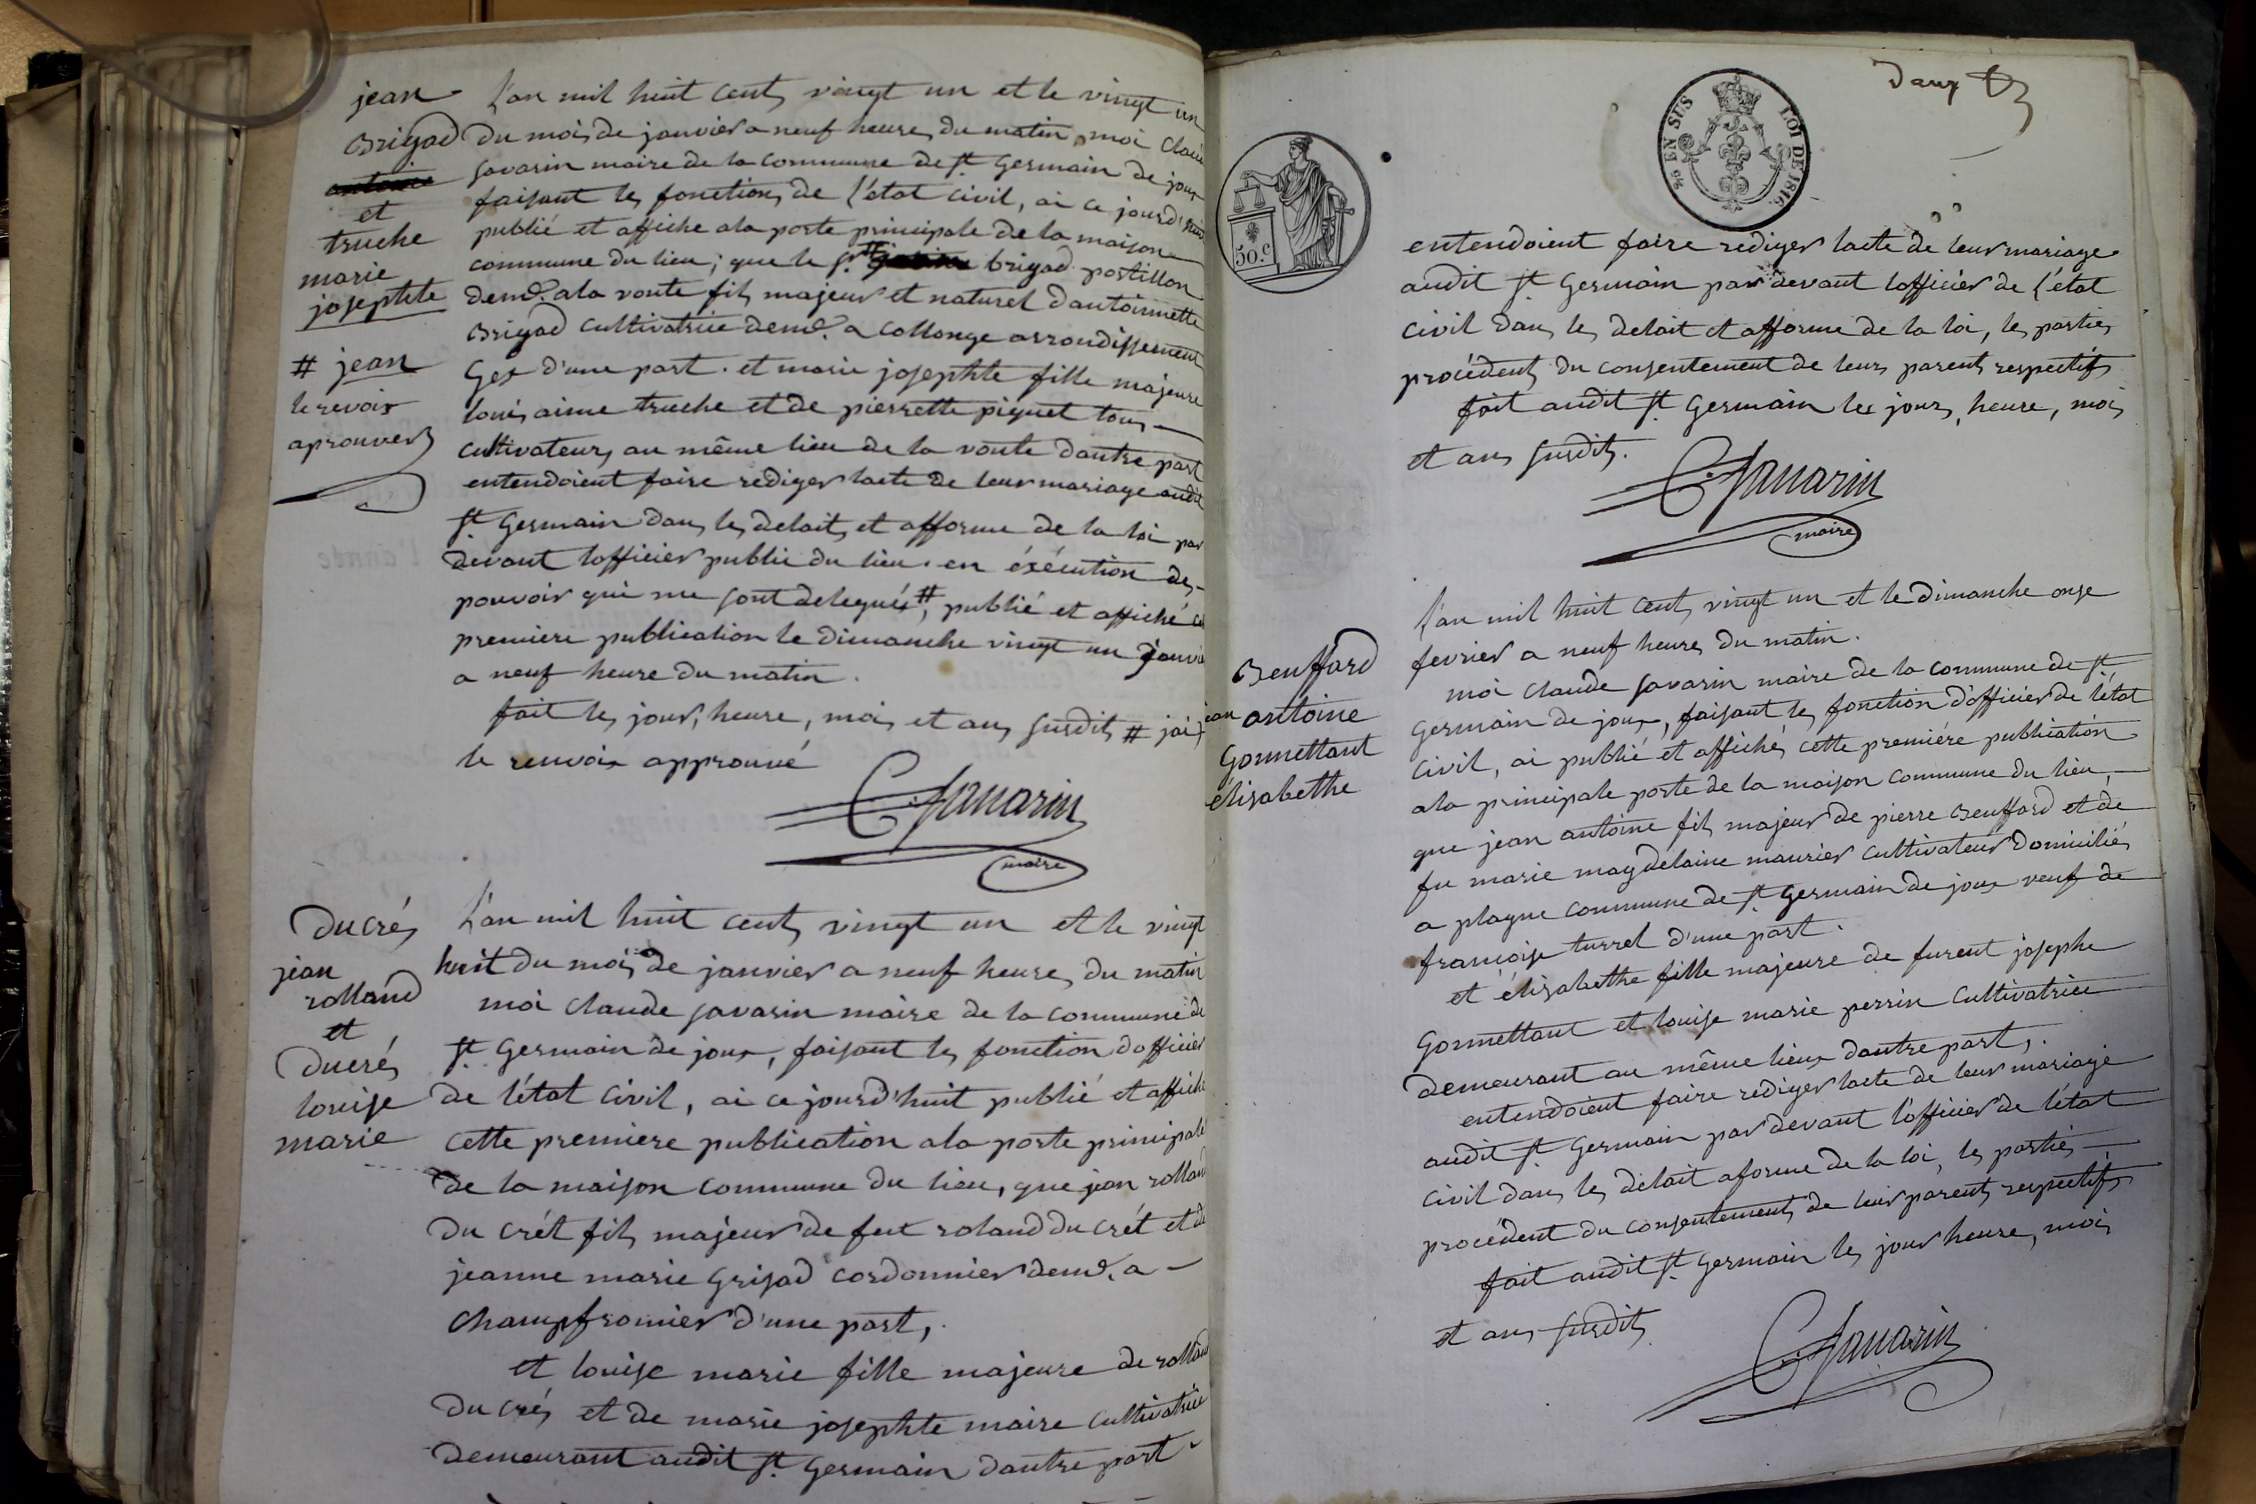 jean
Brigad
antoine
et
truche
marie
josephte
# jean
le revoix
aprouver
L'an mil huit cents vingt un et le vingt un
du mois de janvier a neuf heures du matin, moi claude
savarin maire de la commune de st germain de joux
faisant les fonctions de l'état civil, ai ce jourd'hui
publié et affiche a la porte principale de la maison
commune du lieu; que le sr # brigad postillon
demt. a la voute fils majeur et naturel dantoinette
Brigad cultivatrice demt. a collonge arrondissement
Gex d'une part. et marie josephte fille majeure
louis aime truche et de pierrette piquet tous
cultivateurs au même lieu de la voute dautre part
entendoient faire rediger lacte de leur mariage audit
st germain dans les delaits et afforme de la loi par
devant lofficier public du lieu. en éxécution des
pouvoir qui me sont delegués #, publié et affiché
premiere publication le dimanche vingt un janvier
a neuf heure du matin.
fait les jour, heure, mois et ans susdits # jai
le renvoix approuvé
C. Savarin
maire
Ducrés
jean
rolland
et
Ducrés
louise
marie
L'an mil huit cents vingt un et le vingt
huit du mois de janvier a neuf heures du matin
moi claude savarin maire de la commune de
st germain de joux, faisant les fonction dofficier
de l'état civil, ai ce jourd'huit publié et affiché
cette premiere publication a la porte principale
de la maison commune du lieu, que jean rolland
du crét fils majeur de feu roland du crét et de
jeanne marie Grisad cordonnier demt. a
champfromier d'une part,.
et louise marie fille majeure de rolland
du crés et de marie josephte maire cultivatrice
demeurant audit st germain dautre part
EN SUS LOI DE 1816.
50.c
entendoient faire rediger lacte de leur mariage
audit st germain par devant lofficier de l'état
civil dans les delait et afforme de la loi, les parties
procédents du consentement de leurs parents respectifs
fait audit st germain les jours, heure, mois
et ans susdits.
C. Savarin
maire
Beuffard
jean antoine
Gonnettant
elisabethe
l'an mil huit cents vingt un et le dimanche onze
fevrier a neuf heures du matin.
moi claude savarin maire de la commune de st
germain de joux, faisant les fonction d'officier de l'état
civil, ai publié et affichés cette premiére publication
a la principale porte de la maison commune du lieu,
que jean antoine fils majeur de pierre Beuffard et de
fu marie magdelaine maurier cultivateur domiciliés
a plagne commune de st germain de joux veuf de
francoise turrel d'une part.
et élisabethe fille majeure de furent josephe
Gonnettant et louise marie perrin cultivatrice
demeurant au même lieux dautre part,.
entendoient faire rediger lacte de leur mariage
audit st germain par devant l'officier de l'état
civil dans les delait aforme de la loi, les parties
procédent du consentements de leur parents respectifs
fait audit st germain les jour heure, mois
et ans susdits
C. Savarin